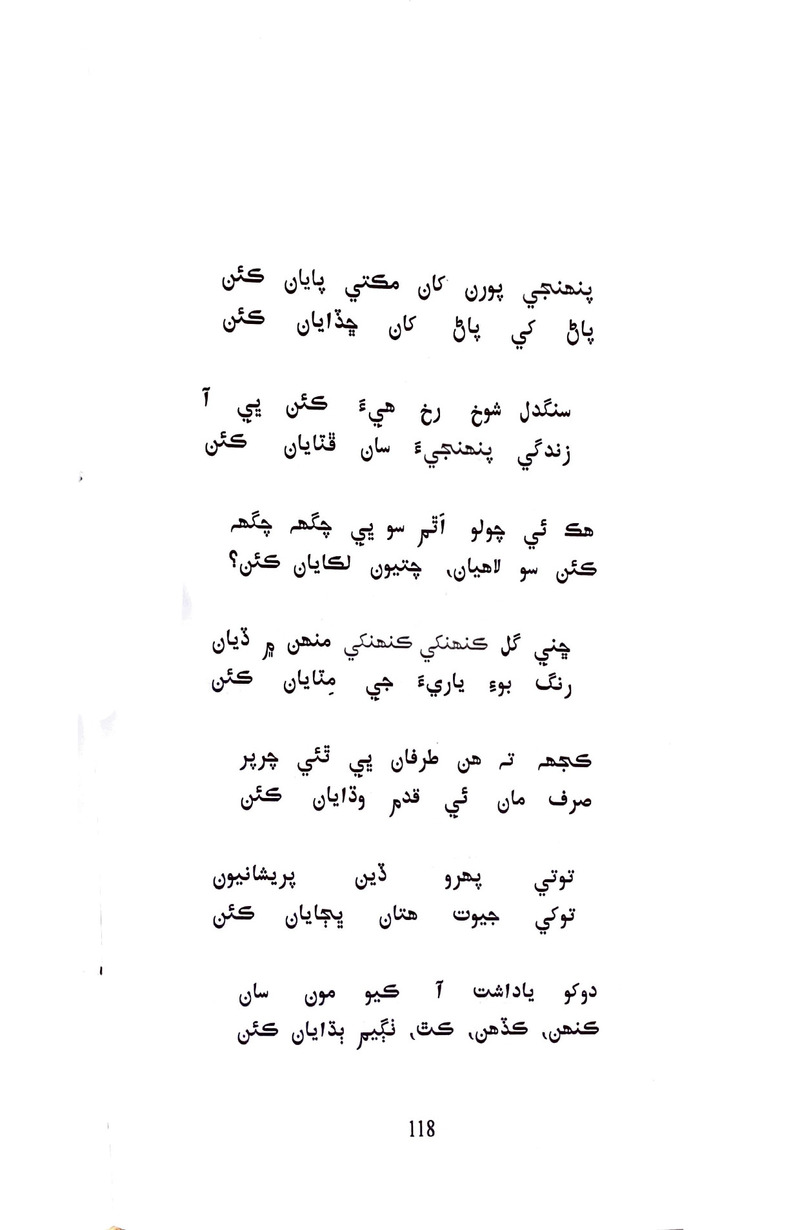 پنهنجي پورن کان مڪتي پايان ڪئن
پاڻ کي پاڻ کان ڇڏايان ڪئن
سنگدل شوخ رخ هيءَ ڪئن ڀي آ
زندگي پنهنجيءَ سان ڦٽايان ڪئن
هڪ ئي چولو اَٿم سو ڀي چگهہ چگهہ
ڪئن سو لاهيان، چتيون لڪايان ڪئن؟
ڇني گل ڪنهنکي ڪنهنکي منهن ۾ ڏيان
رنگ بوءِ ياريءَ جي مِٽايان ڪئن
ڪجهہ تہ هن طرفان ڀي ٿئي چرپر
صرف مان ئي قدم وڌايان ڪئن
توتي پهرو ڏين پريشانيون
توکي جيوت هتان ڀڄايان ڪئن
دوکو ياداشت آ ڪيو مون سان
ڪنهن، ڪڏهن، ڪٿ، ٺڳيم ٻڌايان ڪئن
118